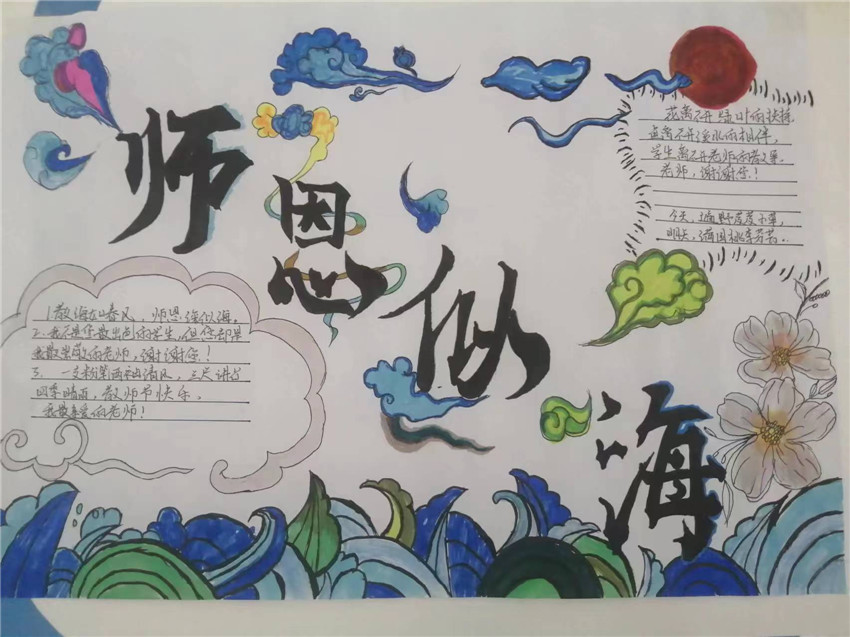 师恩似海
花离不开绿叶的扶持
鱼离不开溪水的相伴，
学生离不开老师的教义。
老师，谢谢你！
今天，遍野度度小草，
明天，满园桃李芬芳。
1.教诲如春风，师恩深似海。
2.我不是您最出色的学生，但您却是
我最崇敬的老师，谢谢您！
3. 一支粉笔两袖清风，三尺讲台
四季晴雨，教师节快乐。
我最亲爱的老师！